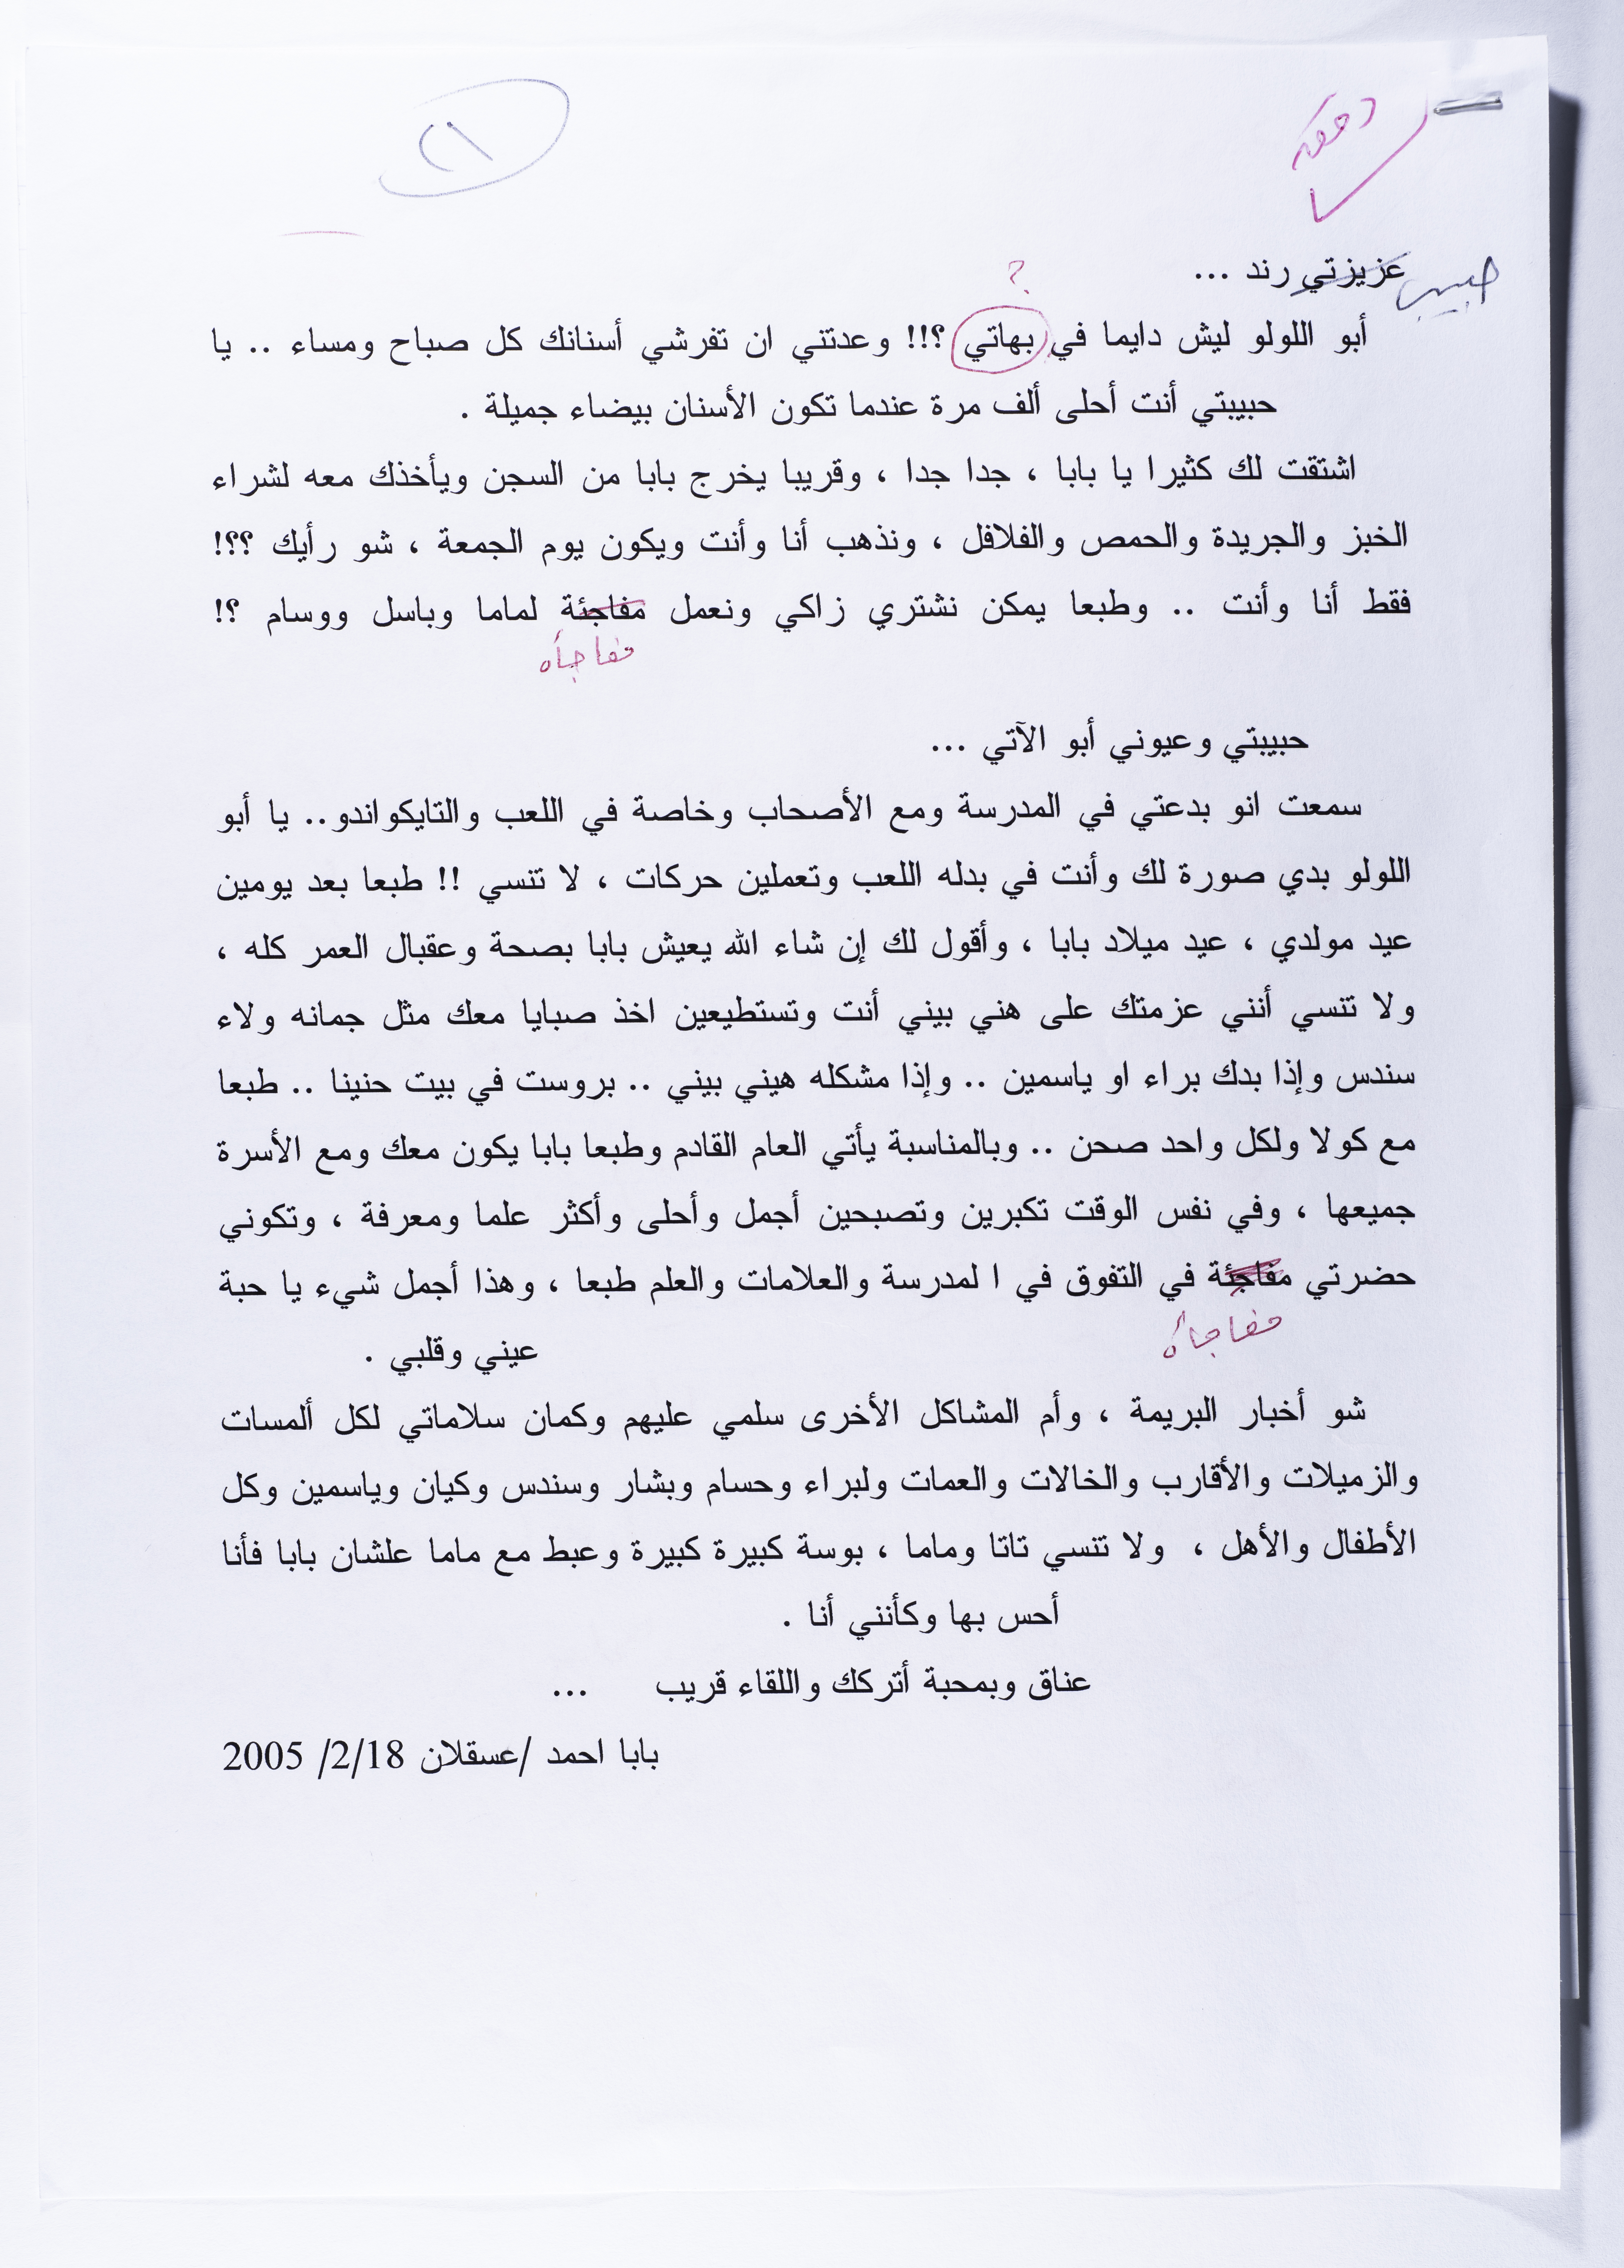 دققه
عزيزتي رند ...
حبيبتي
؟
أبو اللولو ليش دايما في بهاتي ؟!! وعدتني ان تفرشي أسنانك كل صباح ومساء .. يا
حبيبتي أنت أحلى ألف مرة عندما تكون الأسنان بيضاء جميلة .
اشتقت لك كثيرا يا بابا ، جدا جدا ، وقريبا يخرج بابا من السجن ويأخذك معه لشراء
الخبز والجريدة والحمص والفلافل ، ونذهب أنا وأنت ويكون يوم الجمعة ، شو رأيك ؟؟!
فقط أنا وأنت .. وطبعا يمكن نشتري زاكي ونعمل مفاجئة لماما وباسل ووسام ؟!
مفاجأه
حبيبتي وعيوني أبو الآتي ...
سمعت انو بدعتي في المدرسة ومع الأصحاب وخاصة في اللعب والتايكواندو.. يا أبو
اللولو بدي صورة لك وأنت في بدله اللعب وتعملين حركات ، لا تنسي !! طبعا بعد يومين
عيد مولدي ، عيد ميلاد بابا ، وأقول لك إن شاء الله يعيش بابا بصحة وعقبال العمر كله ،
ولا تنسي أنني عزمتك على هني بيني أنت وتستطيعين اخذ صبايا معك مثل جمانه ولاء
سندس وإذا بدك براء او ياسمين .. وإذا مشكله هيني بيني .. بروست في بيت حنينا .. طبعا
مع كولا ولكل واحد صحن .. وبالمناسبة يأتي العام القادم وطبعا بابا يكون معك ومع الأسرة
جميعها ، وفي نفس الوقت تكبرين وتصبحين أجمل وأحلى وأكثر علما ومعرفة ، وتكوني
حضرتي مفاجئة في التفوق في ا لمدرسة والعلامات والعلم طبعا ، وهذا أجمل شيء يا حبة
مفاجأه
عيني وقلبي .
شو أخبار البريمة ، وأم المشاكل الأخرى سلمي عليهم وكمان سلاماتي لكل ألمسات
والزميلات والأقارب والخالات والعمات ولبراء وحسام وبشار وسندس وكيان وياسمين وكل
الأطفال والأهل ، ولا تنسي تاتا وماما ، بوسة كبيرة كبيرة وعبط مع ماما علشان بابا فأنا
أحس بها وكأنني أنا .
عناق وبمحبة أتركك واللقاء قريب ...
بابا احمد /عسقلان 2/18/ 2005